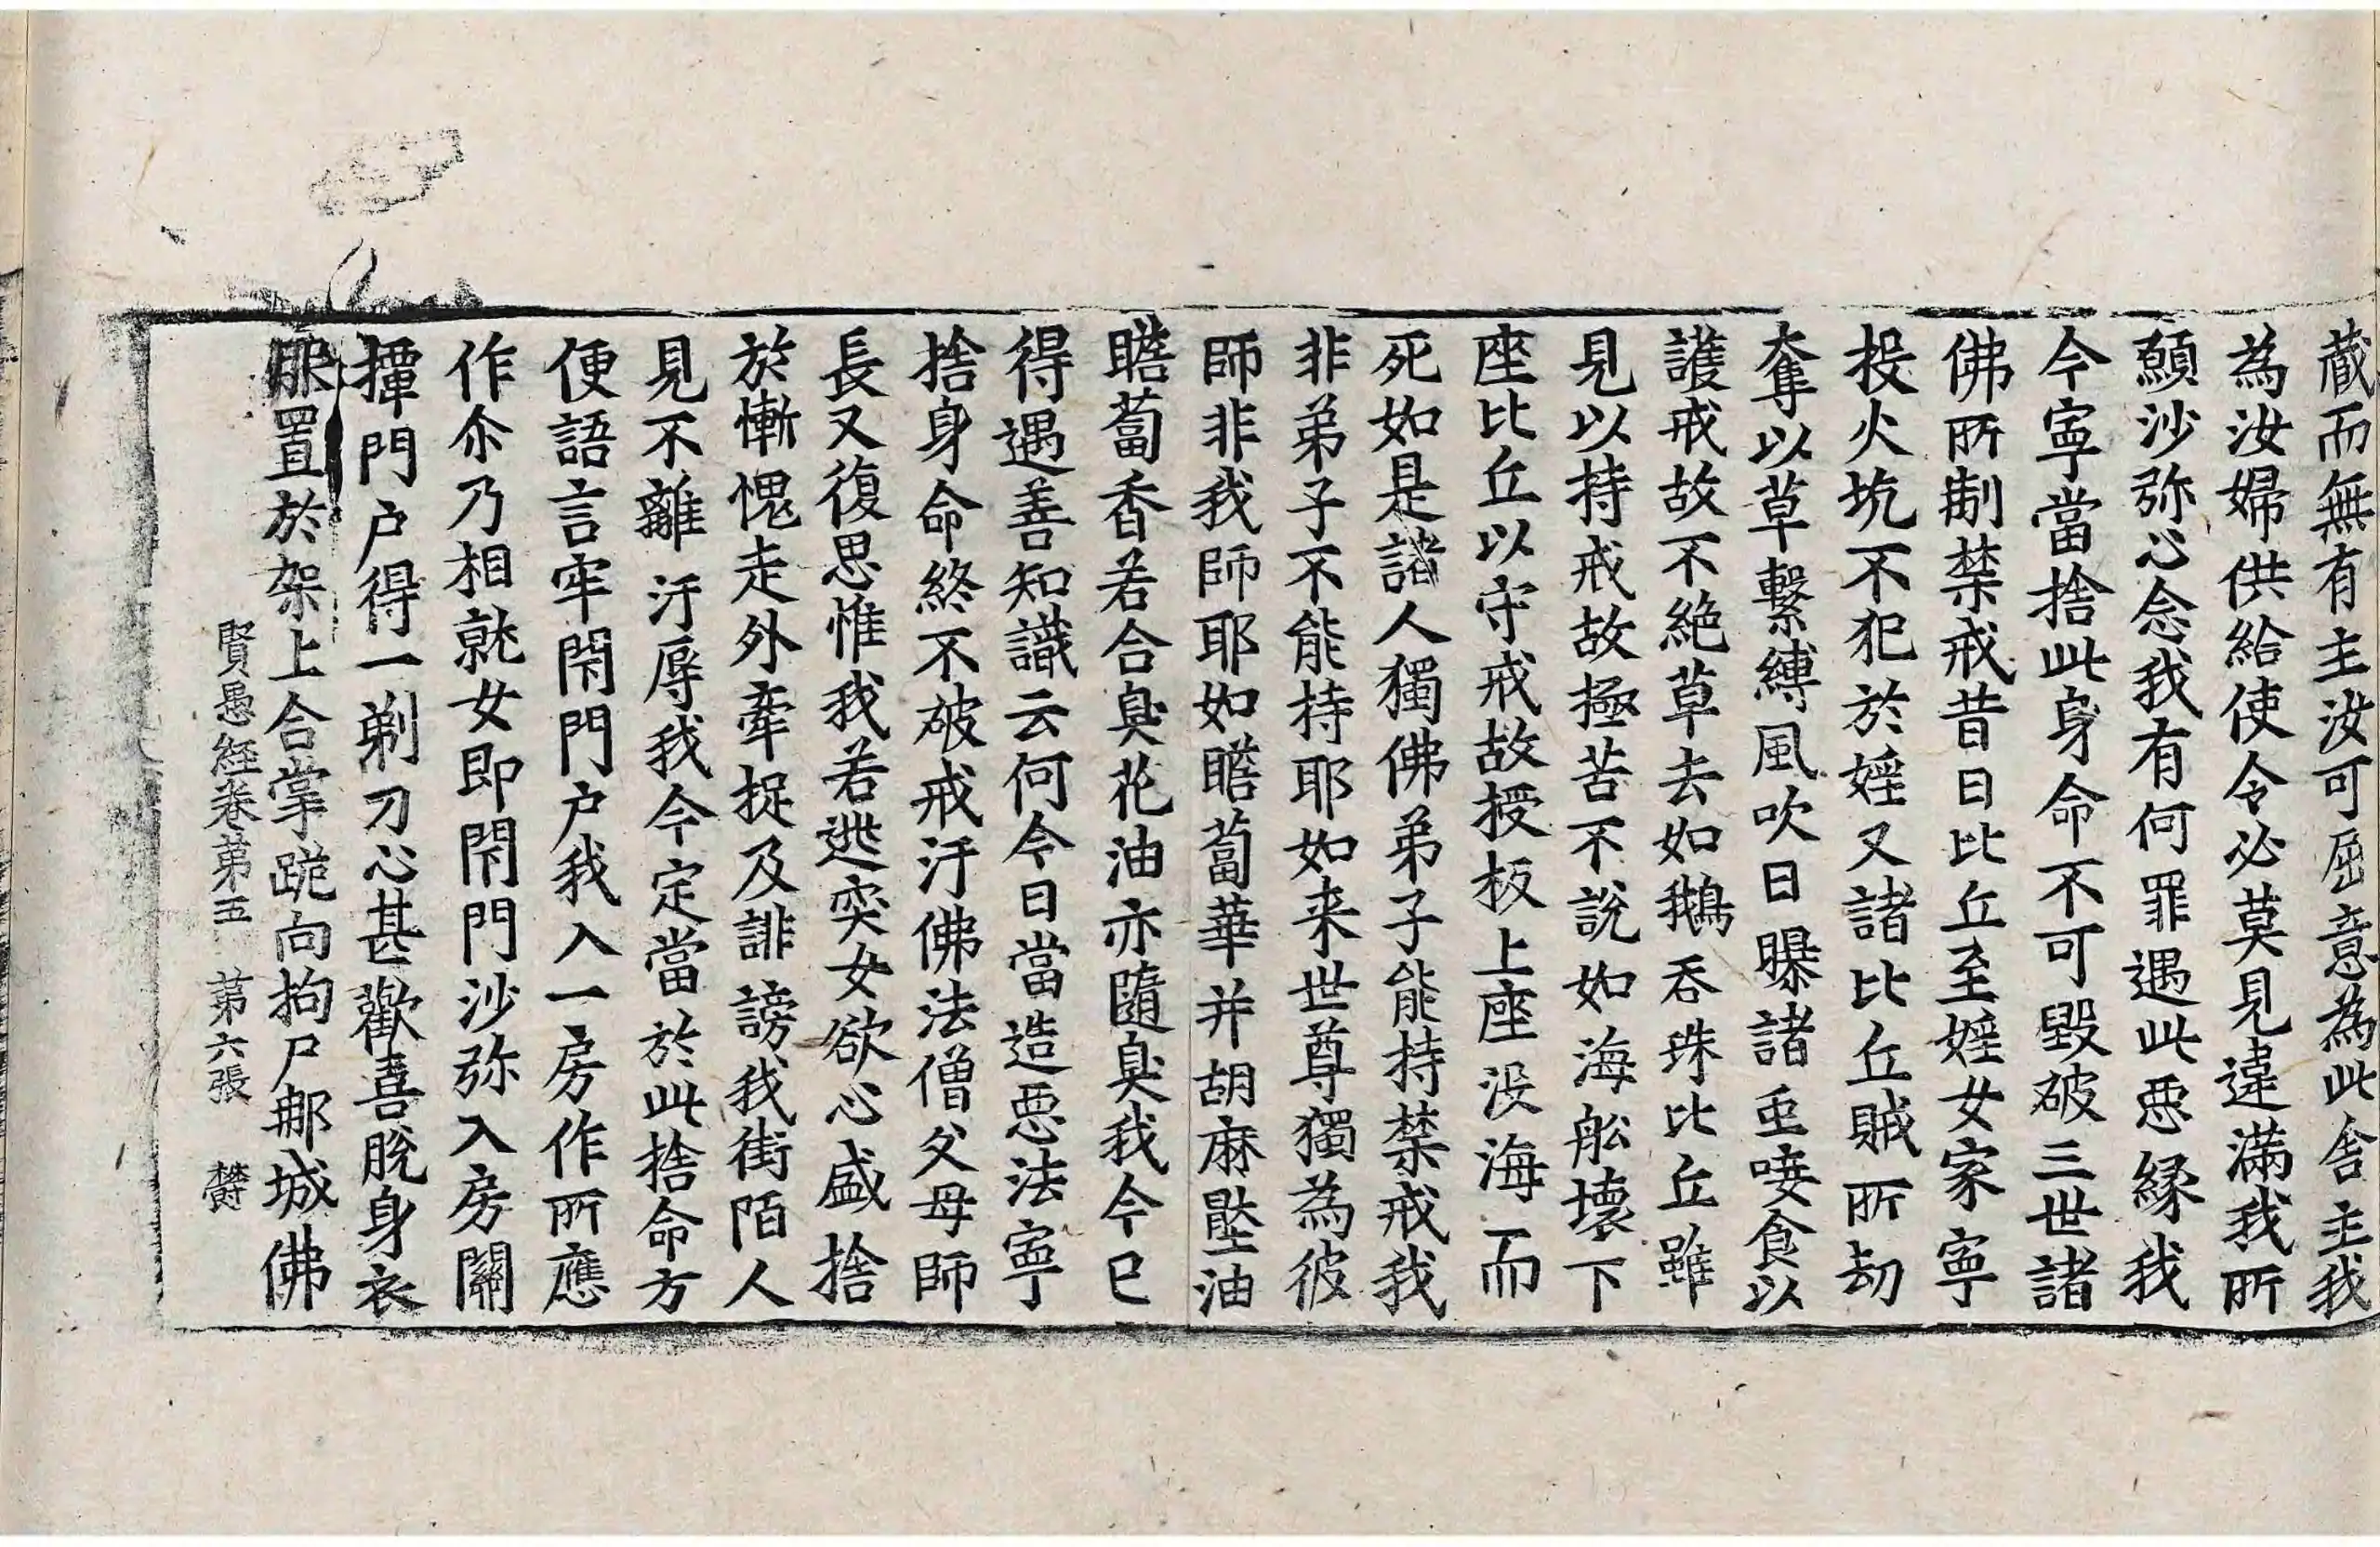 蔵而無有主汝可屈意為此舍主我
為汝婦供給使令必莫見違滿我所
願沙弥心念我有何罪遇此惡緣我
今寧當捨此身命不可毀破三世諸
佛所制禁戒昔日比丘至婬女家寧
投火坑不犯於婬又諸比丘賊所劫
奪以草繫縛風吹日曝諸䖝唼食以
護戒故不絕草去如鵝吞珠比丘雖
見以持戒故極苦不說如海舩壞下
座比丘以守戒故授板上座没海而
死如是諸人獨佛弟子能持禁戒我
非弟子不能持耶如来世尊獨為彼
師非我師耶如瞻蔔華并胡麻壓油
瞻蔔香若合臭花油亦隨臭我今已
得遇善知識云何今日當造惡法寧
捨身命終不破戒汙佛法僧父母師
長又復思惟我若逃突女欲心盛捨
於慚愧走外牽捉及誹謗我街陌人
見不離汙辱我今定當於此捨命方
便語言牢閇門户我入一房作所應
作尒乃相就女即閇門沙弥入房關
撢門户得一剃刀心甚歡喜脫身衣
服置於架上合掌跪向拘尸那城佛
賢愚經卷第五　第六張